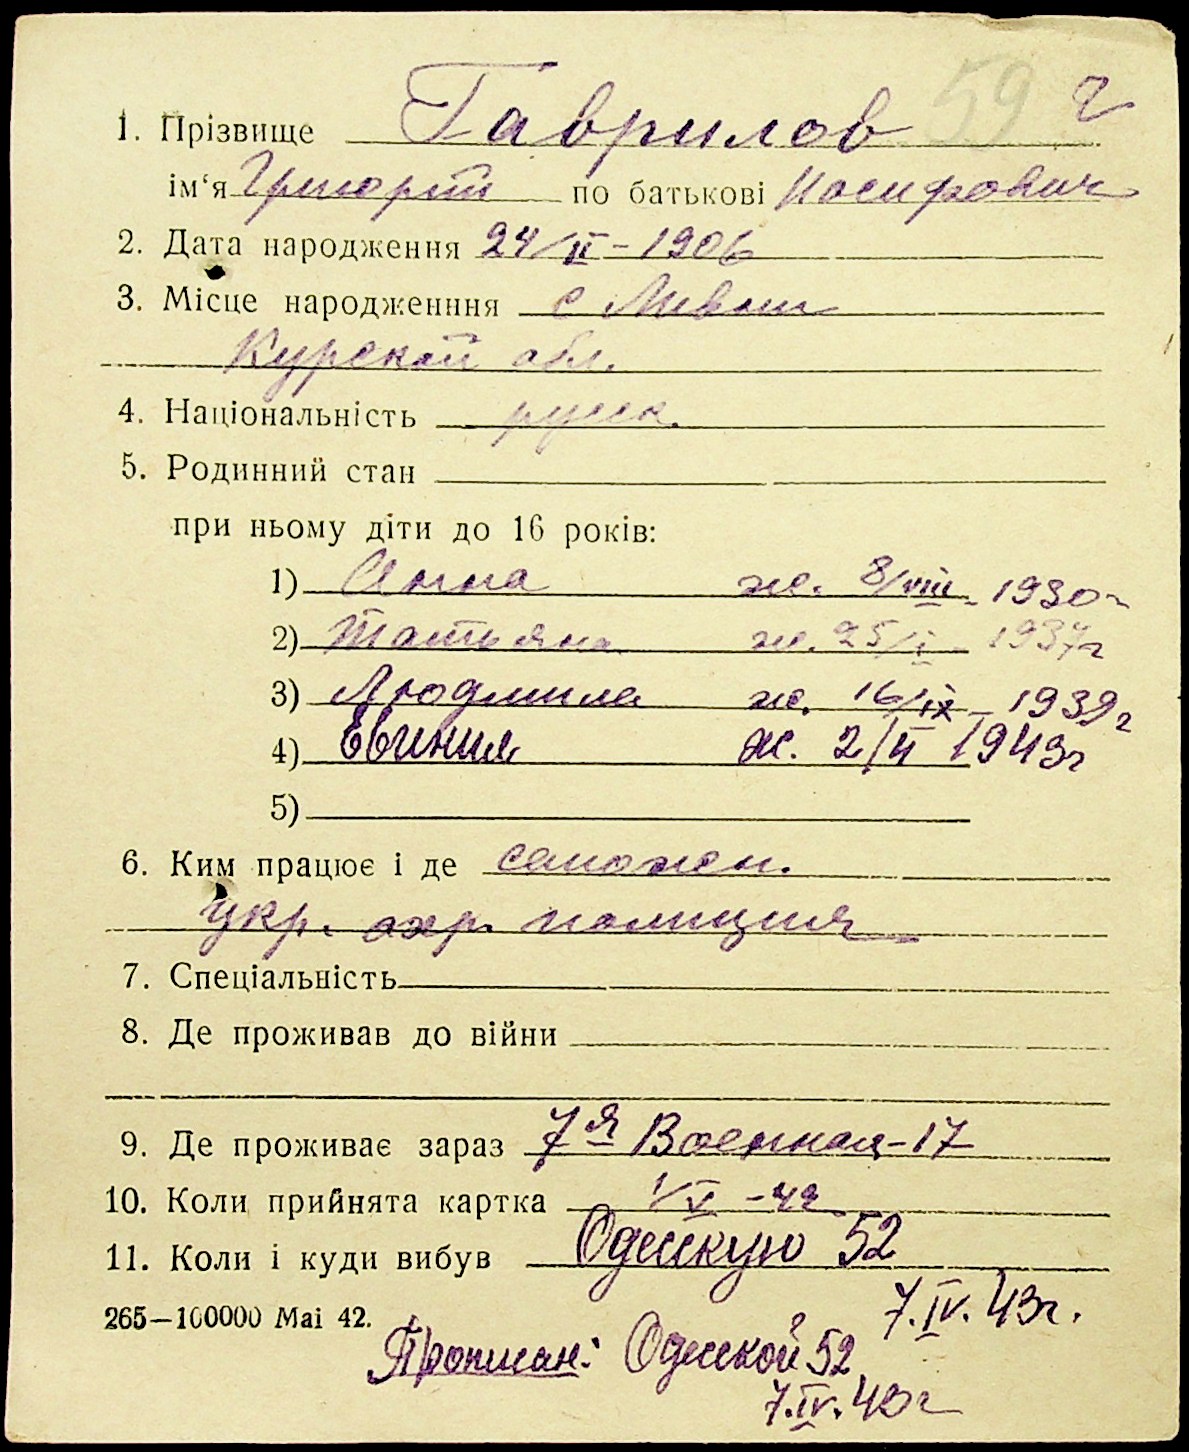 59 г
1. Прізвище Гаврилов
ім‘я Григорий по батькові Иосифович
2. Дата народження 24/II – 1906
3. Місце народженння с
Курской обл.
4. Національність русск.
5. Родинний стан
при ньому діти до 16 років:
1) Анна ж. 8/VIII – 1930г
2) Татьяна ж. 25/I – 1937г
3) Людмила ж. 16/IX – 1939г
4) Евгиния ж. 2/II 1943г
5)
6. Ким працює і де сапожн.
укр. охр. полиция
7. Спеціальність
8. Де проживав до війни
9. Де проживає зараз 7я Военная – 17
10. Коли прийнята картка 1/V – 42
11. Коли і куди вибув Одесскую 52
7.IV.43г.
265—100000 Mai 42.
Прописан: Одесской 52
7.IV.43г